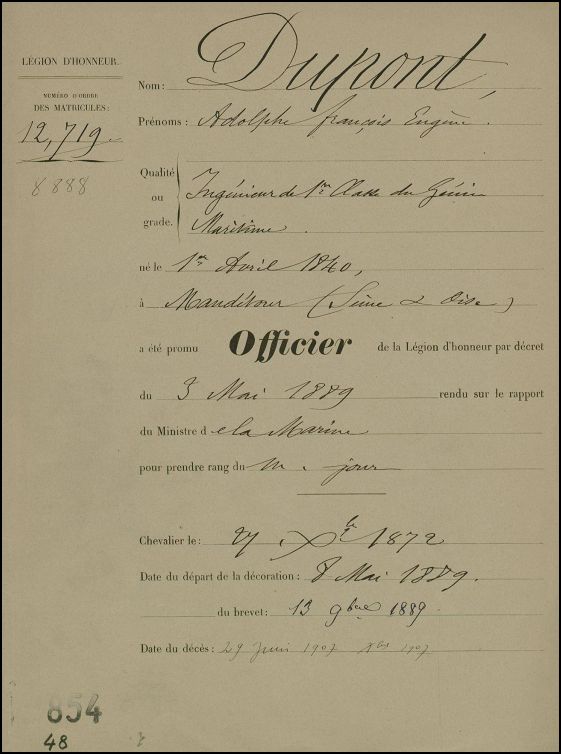 LÉGION D'HONNEUR.
NUMÉRO D'ORDRE
DES MATRICULES:
12,719
8888
Nom: Dupont,
Prénoms: Adolphe françois Eugène.
Qualité
ou
grade.
Ingénieur de 1re Classe du Génie
Maritime.
né le 1er Avril 1840,
à Mandétour (Seine & Oise)
a été promu Officier de la Légion d'honneur par décret
du 3 Mai 1889 rendu sur le rapport
du Ministre de la Marine
pour prendre rang du m. jour
Chevalier le: 27 Xbre 1872
Date du départ de la décoration: 8 Mai 1889.
du brevet: 13 9bre 1889.
Date du décès: 29 Juin 1907 Xbre 1907
854
48